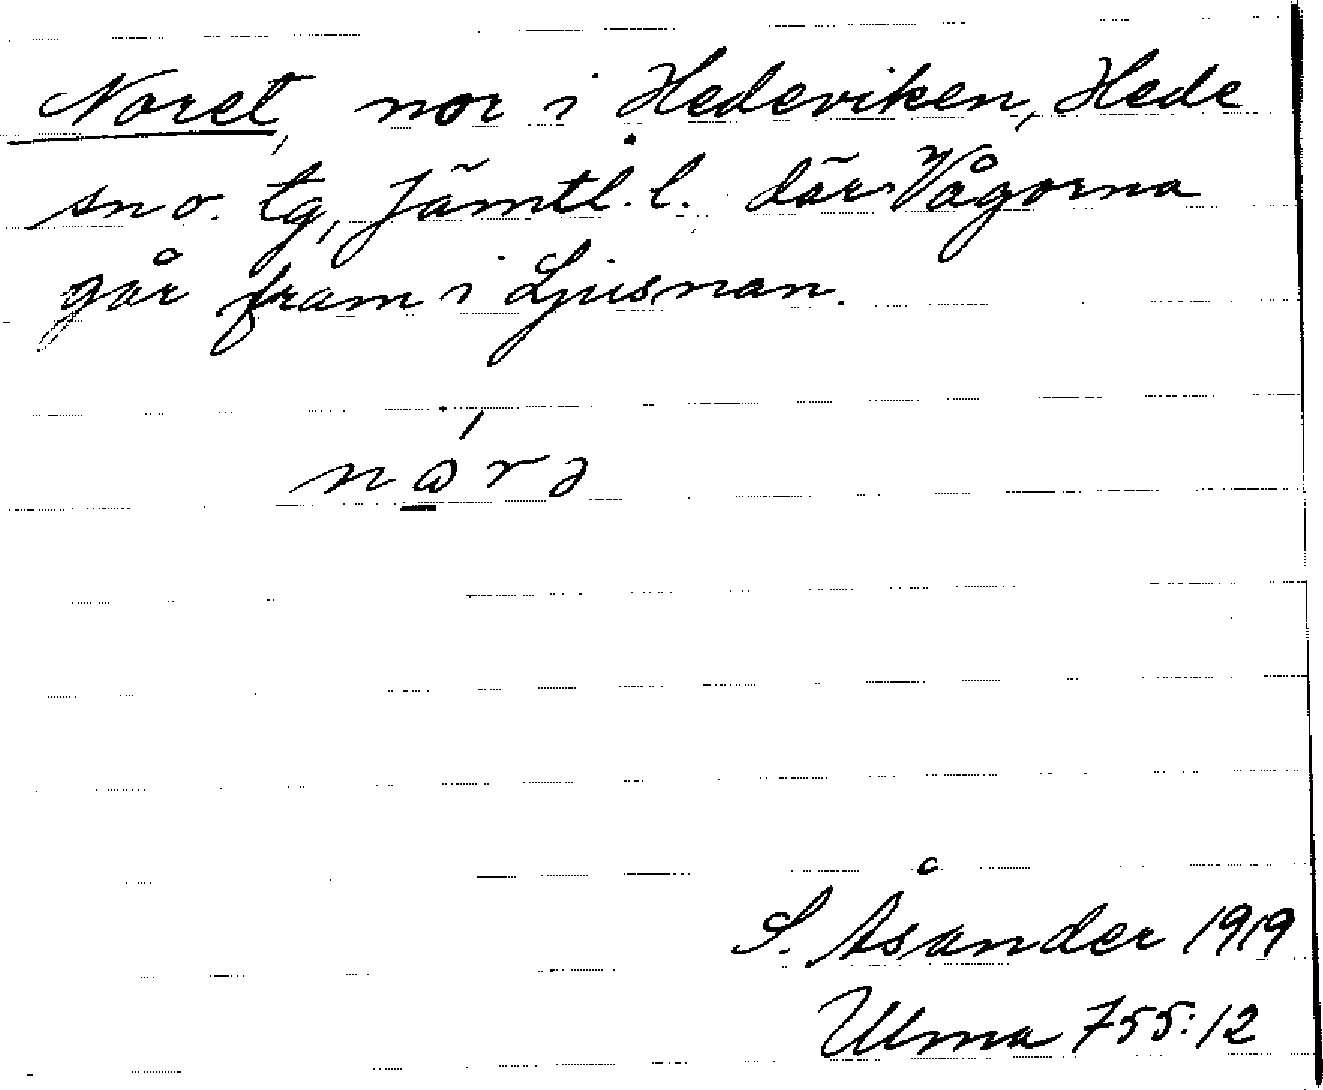 Noret, nor i Hedeviken, Hede
sn o. tg, Jämtl. l. där Vågorna
går fram i Ljusnan.
nǻ̱rə
S. Åsander 1919
Ulma 755:12